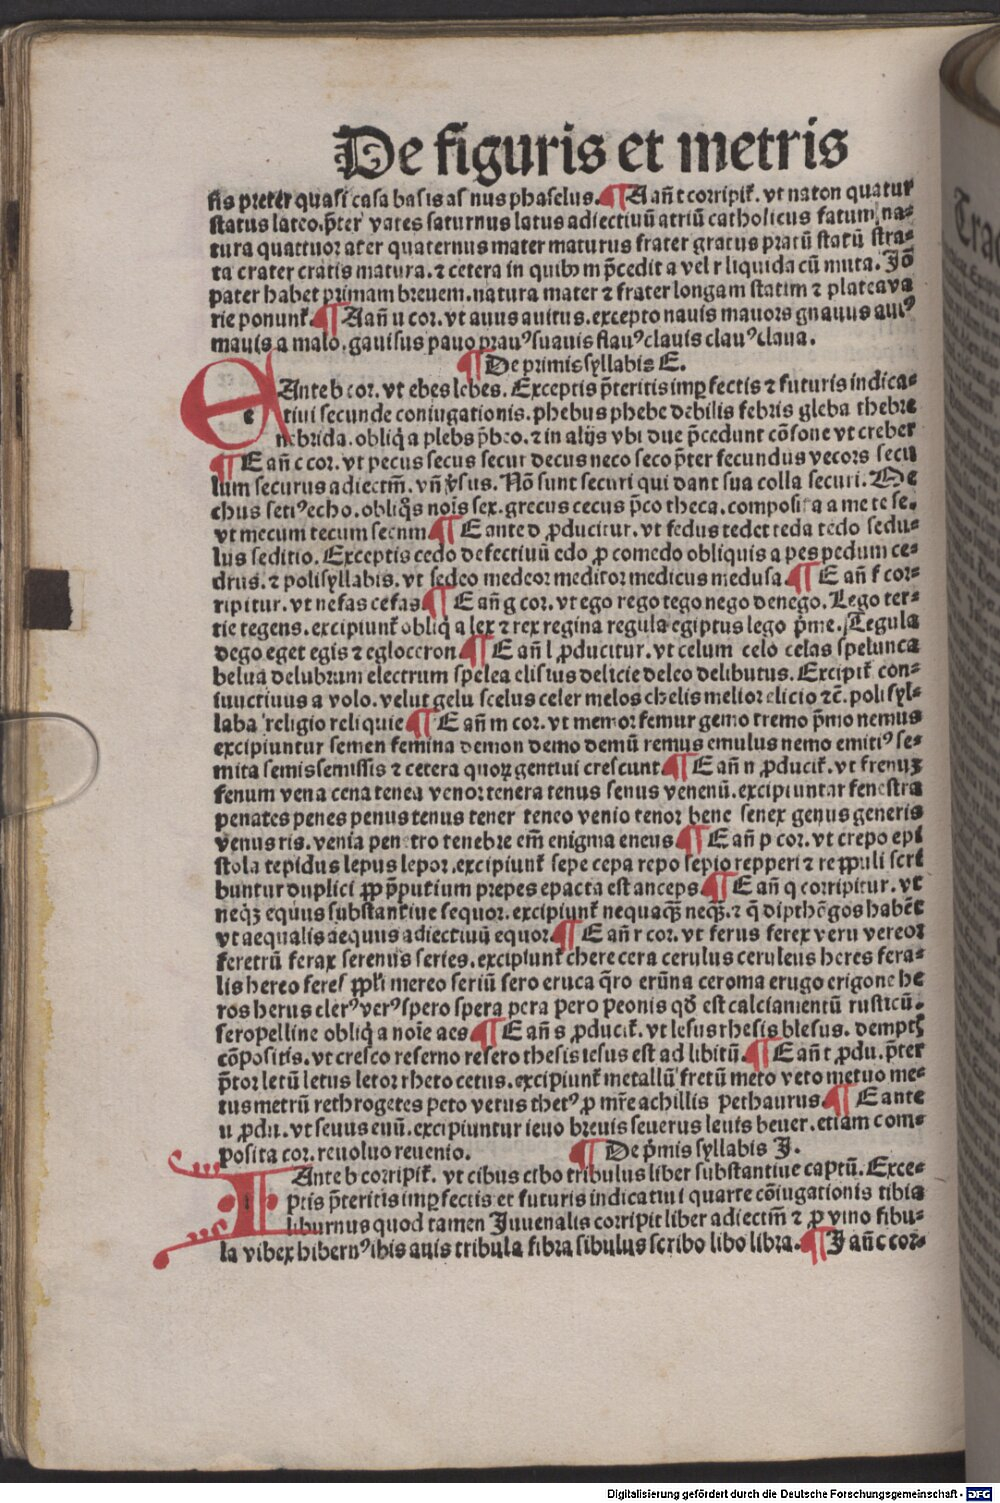 De figuris et metris
sis preter quasi casa basis asinus phaselus. ¶ A añ t corripiť. vt naton quatur
status lateo. p̄ter vates saturnus latus adiectiuū atriū catholicus fatum na⸗
tura quattuor ater quaternus mater maturus frater gratus pratū statū stra⸗
ta crater cratis matura. ⁊ cetera in quibꝫ m p̄cedit a vel r liquida cū muta. Jō
pater habet primam breuem. natura mater ⁊ frater longam statim ⁊ plateava
rie ponunť. ¶ A añ u cor. vt auus auitus. excepto nauis mauors gnauus auiꝰ
mauis a malo. gauisus pauo prauꝰ suauis flauꝰ clauis clauꝰ claua.
¶ De primis syllabis E.
E Ante b cor. vt ebes lebes. Exceptis p̄teritis imꝑfectis ⁊ futuris indica⸗
tiui secunde coniugationis. phebus phebe debilis febris gleba thebre
nebrida. obliq̄ a plebs p̄beo. ⁊ in alijs vbi due p̄cedunt cōsone vt creber
¶ E añ c cor. vt pecus secus secur decus neco seco p̄ter fecundus vecors secu
lum securus adiectm̄. vñ v̓sus. Nō sunt securi qui dant sua colla securi. De
chus setiꝰ echo. obliq̄s nois̄ sex. grecus cecus p̄co theca. composita a me te se.
vt mecum tecum secum ¶ E ante d ꝓducitur. vt fedus tedet teda tedo sedu⸗
lus seditio. Exceptis cedo defectiuū edo ꝓ comedo obliquis a pes pedum ce⸗
drus. ⁊ polisyllabis. vt sedeo medeor meditor medicus medusa ¶ E añ f cor⸗
ripitur. vt nefas cefas ¶ E añ g cor. vt ego rego tego nego denego. Lego ter⸗
tie tegens. excipiunť obliq̄ a lex ⁊ rex regina regula egiptus lego p̄me. Tegula
dego eget egis ⁊ egloceron ¶ E añ l ꝓducitur. vt celum celo celas spelunca
belua delubrum electrum spelea elisius delicie deleo delibutus. Excipiť con⸗
iunctiuus a volo. velut gelu scelus celer melos chelis melior elicio ⁊c̄. polisyl⸗
laba religio reliquie ¶ E añ m cor. vt memor femur gemo tremo p̄mo nemus
excipiuntur semen femina demon demo demū remus emulus nemo emitiꝰ se⸗
mita semis semissis ⁊ cetera quoꝝ gentiui crescunt ¶ E añ n ꝓduciť. vt frenuꝫ
fenum vena cena tenea venor tenera tenus senus venenū. excipiuntur fenestra
penates penes penus tenus tener teneo venio tenor bene senex genus generis
venus ris. venia penetro tenebre em̄ enigma eneus ¶ E añ p cor. vt crepo epi
stola tepidus lepus lepor. excipiunť sepe cepa repo sepio repperi ⁊ reꝑpuli scri
buntur duplici ꝓp p̄putium prepes epacta est anceps ¶ E añ q corripitur. vt
neqꝫ equus substantiue sequor. excipiunť nequaqꝫ neqꝫ. ⁊ q̄ dipthōgos habēt
vt aequalis aequus adiectiuū equor ¶ E añ r cor. vt ferus ferex veru vereor
feretrū ferax serenus series. excipiunť chere cera cerulus ceruleus heres fera⸗
lis hereo feres mereo seriū sero eruca q̄ro erūna ceroma erugo erigone he
ros herus clerꝰ verꝰ spero spera pera pero peonis qđ est calciamentū rusticū.
seropelline obliq̄ a noīe aes ¶ E añ s ꝓduciť. vt lesus thesis blesus. demptꝭ
cōpositis. vt cresco reserno resero thesis iesus est ad libitū. ¶ E añ t ꝓdu. p̄ter
p̄tor letū letus letor rheto cetus. excipiunť metallū fretū meto veto metuo me⸗
tus metrū rethrogetes peto vetus thetꝰ ꝓ mr̄e achillis pethaurus ¶ E ante
u ꝓdu. vt seuus euū. excipiuntur ieuo breuis seuerus leuis beuer. etiam com⸗
posita cor. reuoluo reuenio. ¶ De p̄mis syllabis J.
I Ante b corripiť. vt cibus cibo tribulus liber substantiue captū. Exce⸗
ptis p̄teritis imꝑfectis et futuris indicatiui quarte cōiugationis tibia
liburnus quod tamen Juuenalis corripit liber adiectm̄ ⁊ ꝓ vino fibu⸗
la vibex hibernꝰ ibis auis tribula fibra sibulus scribo libo libra. ¶ J añ c cor⸗
Digitalisierung gefördert durch die Deutsche Forschungsgemeinschaft - DFG